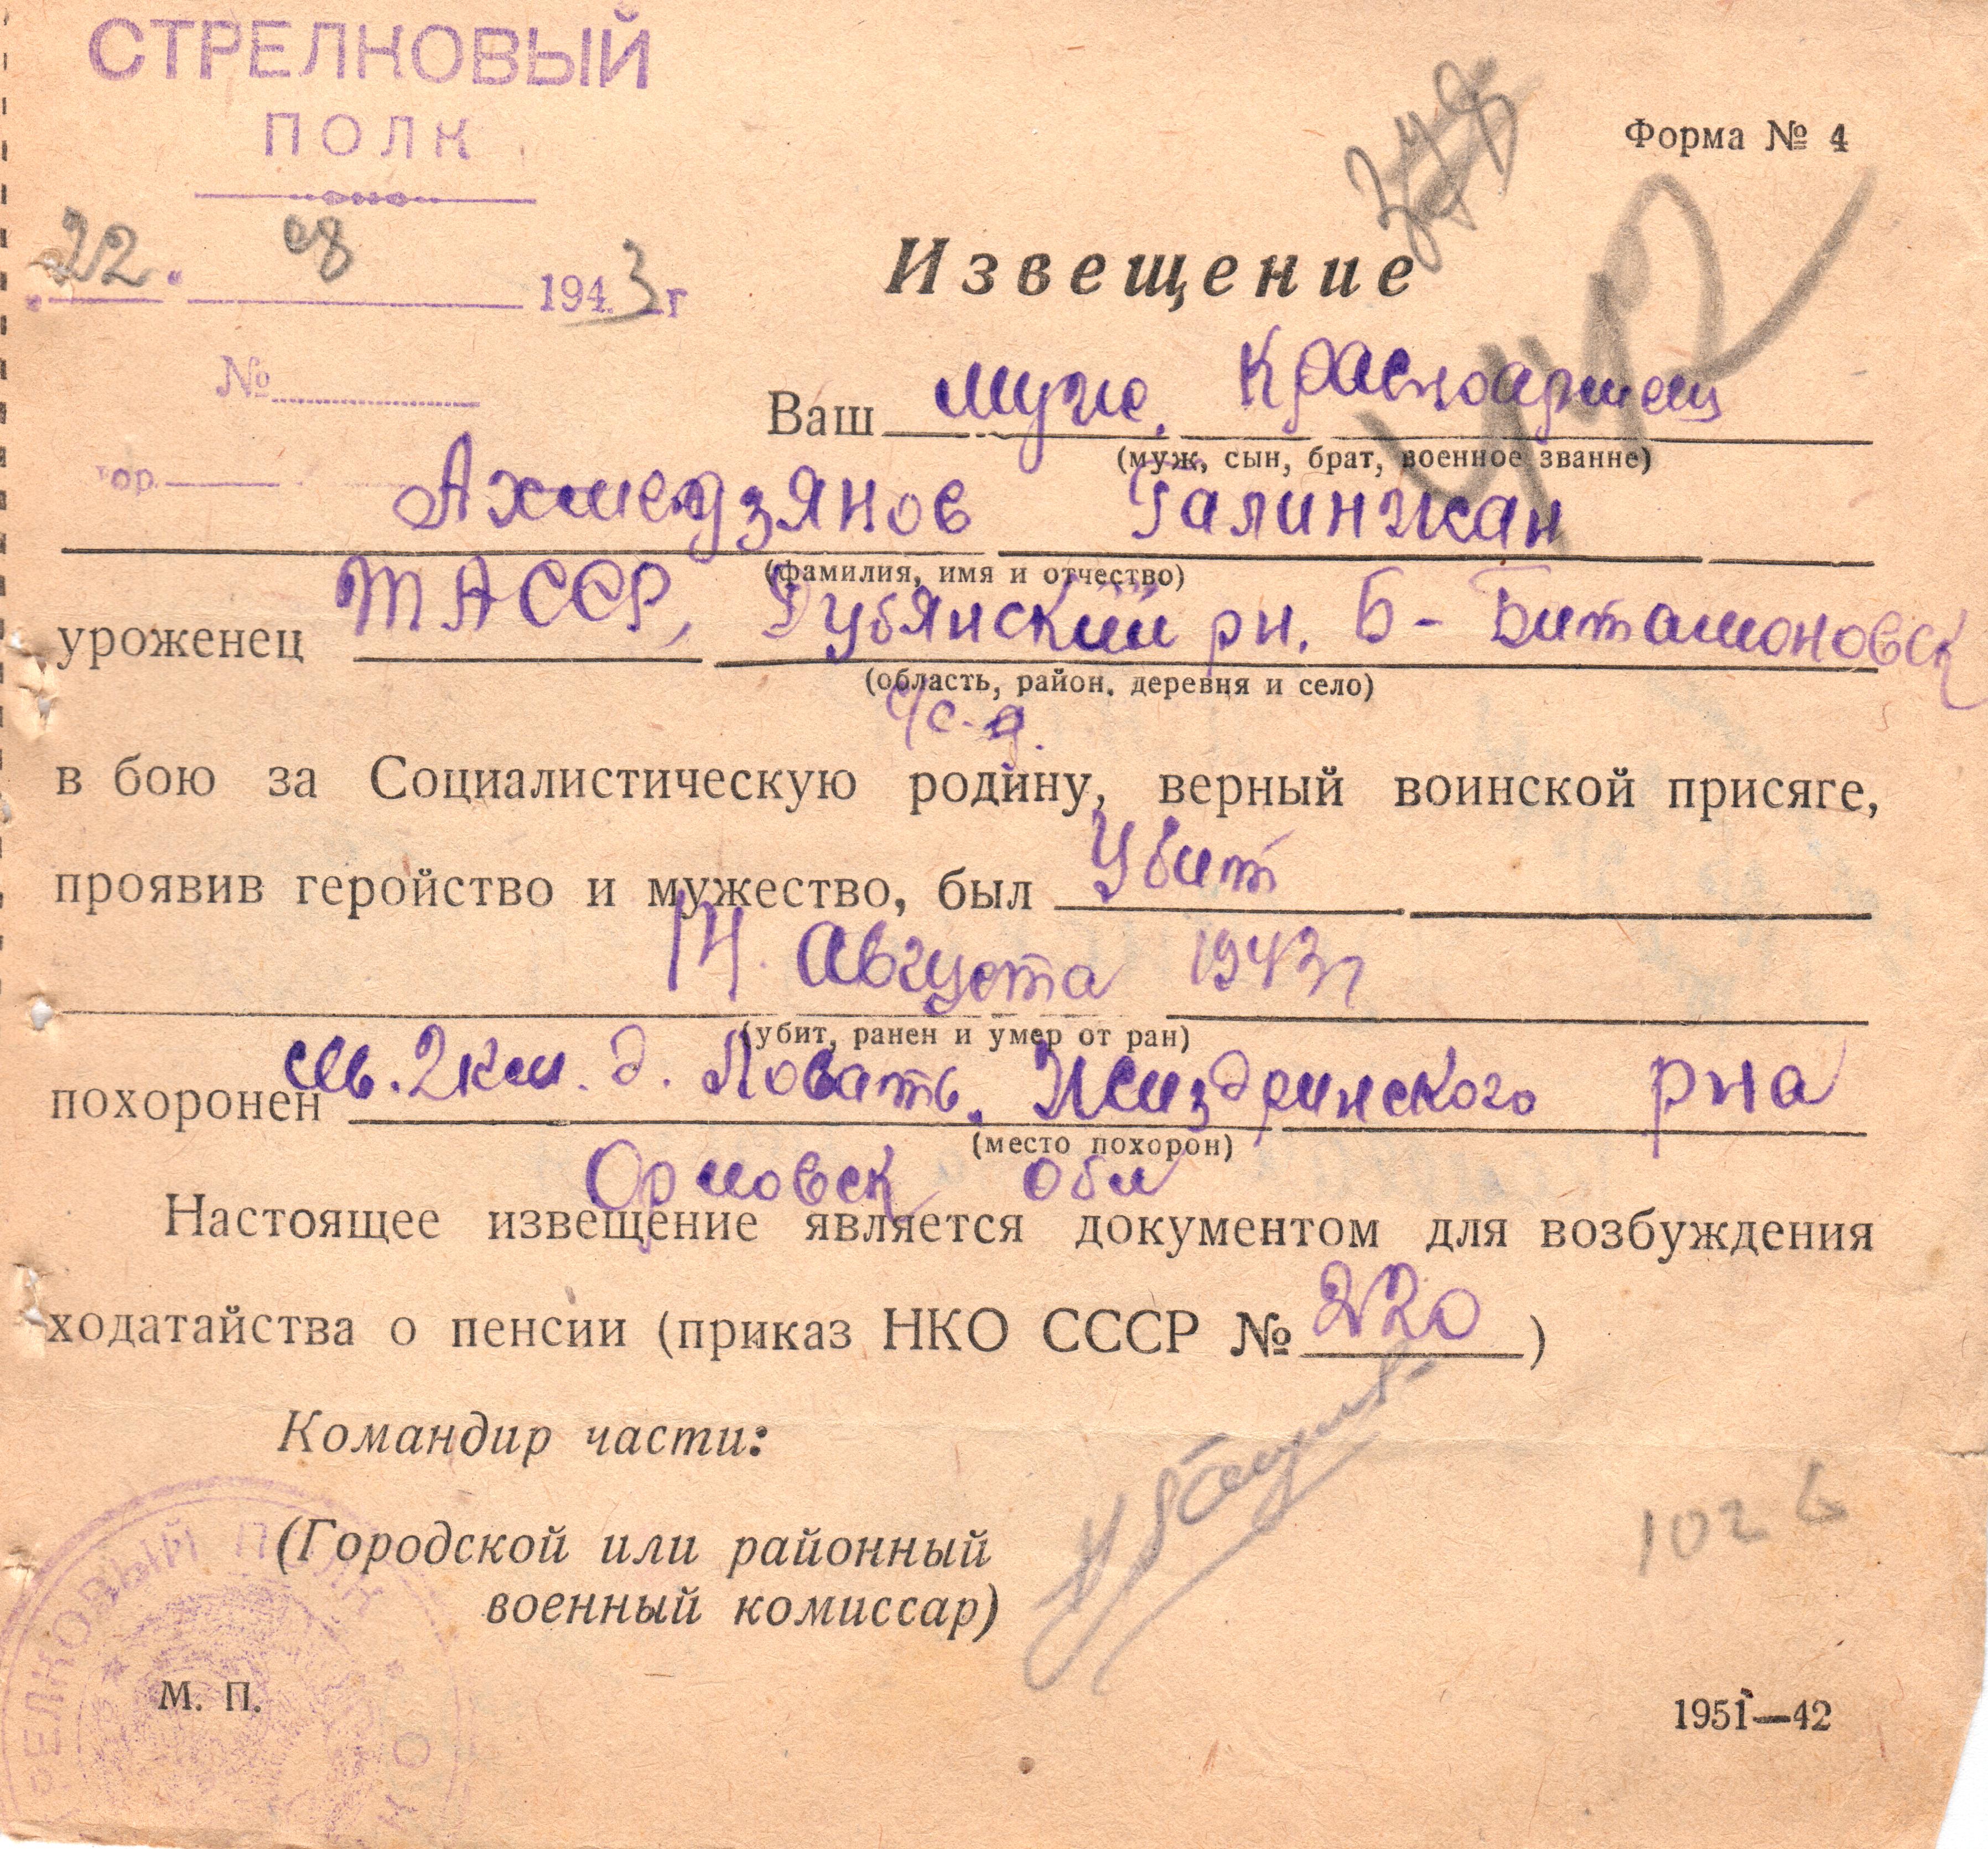 СТРЕЛКОВЫЙ
ПОЛК
Форма № 4
22. 08 1943 г
№
Извещение
Ваш муж. Красноармеец
(муж, сын, брат, военное звание)
гор.
Ахмедзянов Галинжан
(фамилия, имя и отчество)
уроженец ТАССР, Дубянский рн. Б-Битамоновск
(область, район, деревня и село)
с/с-д.
в бою за Социалистическую родину, верный воинской присяге,
проявив геройство и мужество, был Убит
14. Августа 1943г
(убит, ранен и умер от ран)
похоронен 2км. д. Ловать. Жиздринского рна
(место похорон)
Орловск обл
Настоящее извещение является документом для возбуждения
ходатайства о пенсии (приказ НКО СССР № 220)
Командир части:
(Городской или районный
военный комиссар)
102
СТРЕЛКОВЫЙ ПОЛК
М. П.
1951—42